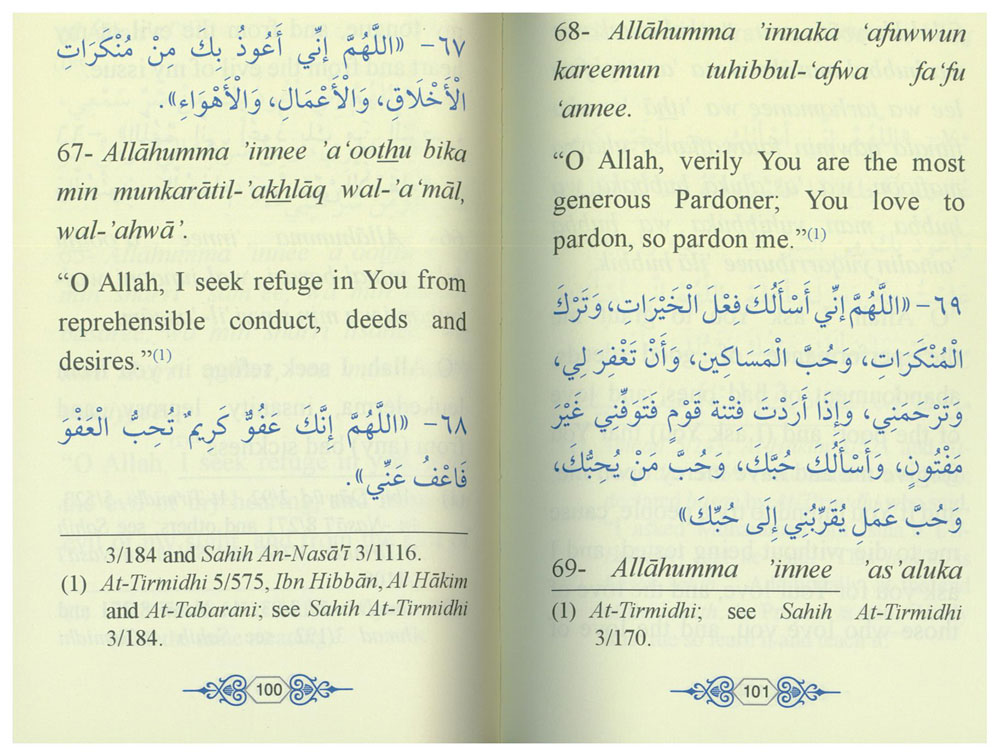 ٦٧- «اللَّهُمَّ إِنِّي أَعُوذُ بِكَ مِنْ مُنْكَرَاتِ
الْأَخْلَاقِ، وَالْأَعْمَالِ، وَالْأَهْوَاءِ».
67- Allāhumma ’innee ’a‘oothu bika
min munkarātil-’akhlāq wal-’a‘māl,
wal-’ahwā’.
“O Allah, I seek refuge in You from
reprehensible conduct, deeds and
desires.”(1)
٦٨- «اللَّهُمَّ إِنَّكَ عَفُوٌّ كَرِيمٌ تُحِبُّ الْعَفْوَ
فَاعْفُ عَنِّي».
3/184 and Sahih An-Nasā’ī 3/1116.
(1) At-Tirmidhi 5/575, Ibn Hibbān, Al Hākim
and At-Tabarani; see Sahih At-Tirmidhi
3/184.
100
68- Allāhumma ’innaka ‘afuwwun
kareemun tuhibbul-‘afwa fa‘fu
‘annee.
“O Allah, verily You are the most
generous Pardoner; You love to
pardon, so pardon me.”(1)
٦٩- «اللَّهُمَّ إِنِّي أَسْأَلُكَ فِعْلَ الْخَيْرَاتِ، وَتَرْكَ
الْمُنْكَرَاتِ، وَحُبَّ الْمَسَاكِينِ، وَأَنْ تَغْفِرَ لِي،
وَتَرْحَمَنِي، وَإِذَا أَرَدْتَ فِتْنَةَ قَوْمٍ فَتَوَفَّنِي غَيْرَ
مَفْتُونٍ، وَأَسْأَلُكَ حُبَّكَ، وَحُبَّ مَنْ يُحِبُّكَ،
وَحُبَّ عَمَلٍ يُقَرِّبُنِي إِلَى حُبِّكَ»
69- Allāhumma ’innee ’as’aluka
(1) At-Tirmidhi; see Sahih At-Tirmidhi
3/170.
101